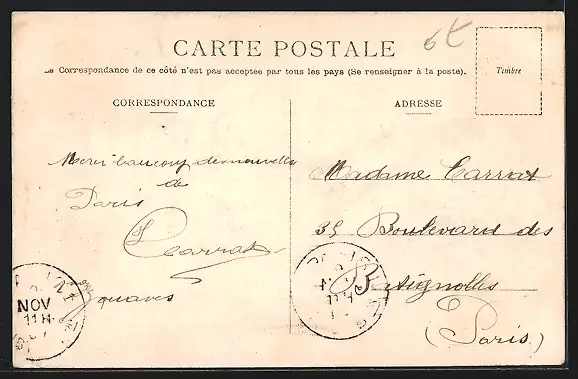 6f
CARTE POSTALE
La Correspondance de ce côté n'est pas acceptée par tous les pays (Se renseigner à la poste).
Timbre
CORRESPONDANCE
ADRESSE
Merci baucoup de nouvelle
de
Paris
Carrat
Zouaves
Madame Carrat
35 Boulevard des
Batignolles
(Paris.)
NOV
11 H